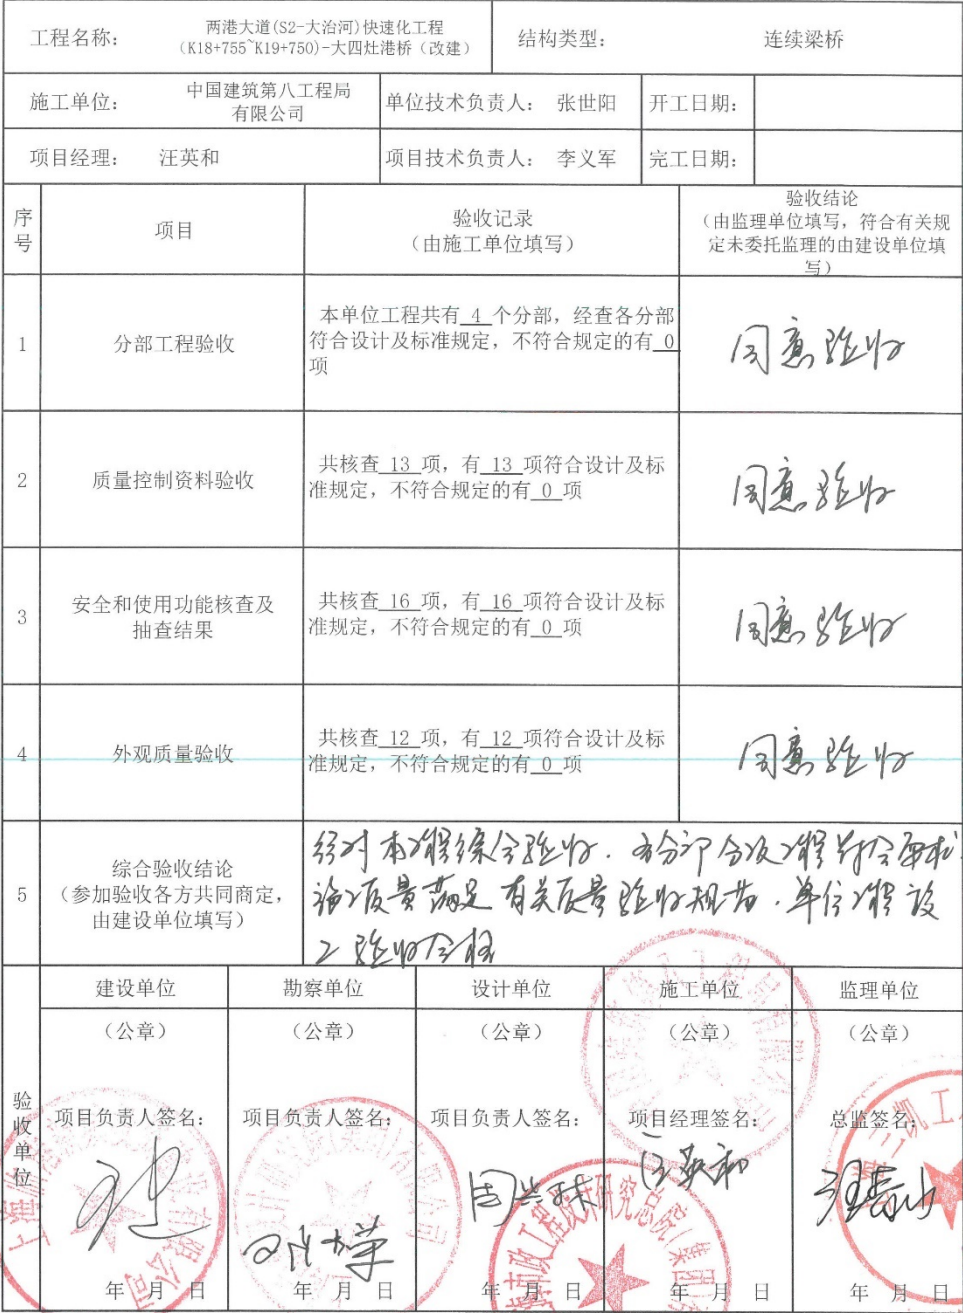 工程名称：
两港大道(S2-大治河)快速化工程
(K18+755~K19+750)-大四灶港桥（改建）
结构类型：
连续梁桥
施工单位：
中国建筑第八工程局
有限公司
单位技术负责人：
张世阳
开工日期：
项目经理：
汪英和
项目技术负责人：
李义军
完工日期：
序
号
项目
验收记录
（由施工单位填写）
验收结论
（由监理单位填写，符合有关规
定未委托监理的由建设单位填
写）
1
分部工程验收
本单位工程共有 4 个分部，经查各分部
符合设计及标准规定，不符合规定的有 0
项
同意验收
2
质量控制资料验收
共核查 13 项，有 13 项符合设计及标
准规定，不符合规定的有 0 项
同意验收
3
安全和使用功能核查及
抽查结果
共核查 16 项，有 16 项符合设计及标
准规定，不符合规定的有 0 项
同意验收
4
外观质量验收
共核查 12 项，有 12 项符合设计及标
准规定，不符合规定的有 0 项
同意验收
5
综合验收结论
（参加验收各方共同商定，
由建设单位填写）
经对本工程综合验收，各分部分项工程符合要求
质量满足有关质量验收规范，单位工程
验收合格
验
收
单
位
建设单位
勘察单位
设计单位
施工单位
监理单位
（公章）
（公章）
（公章）
（公章）
（公章）
项目负责人签名：
项目负责人签名：
项目负责人签名：
项目经理签名：
总监签名：
汪英和
年 月 日
年 月 日
年 月 日
年 月 日
年 月 日